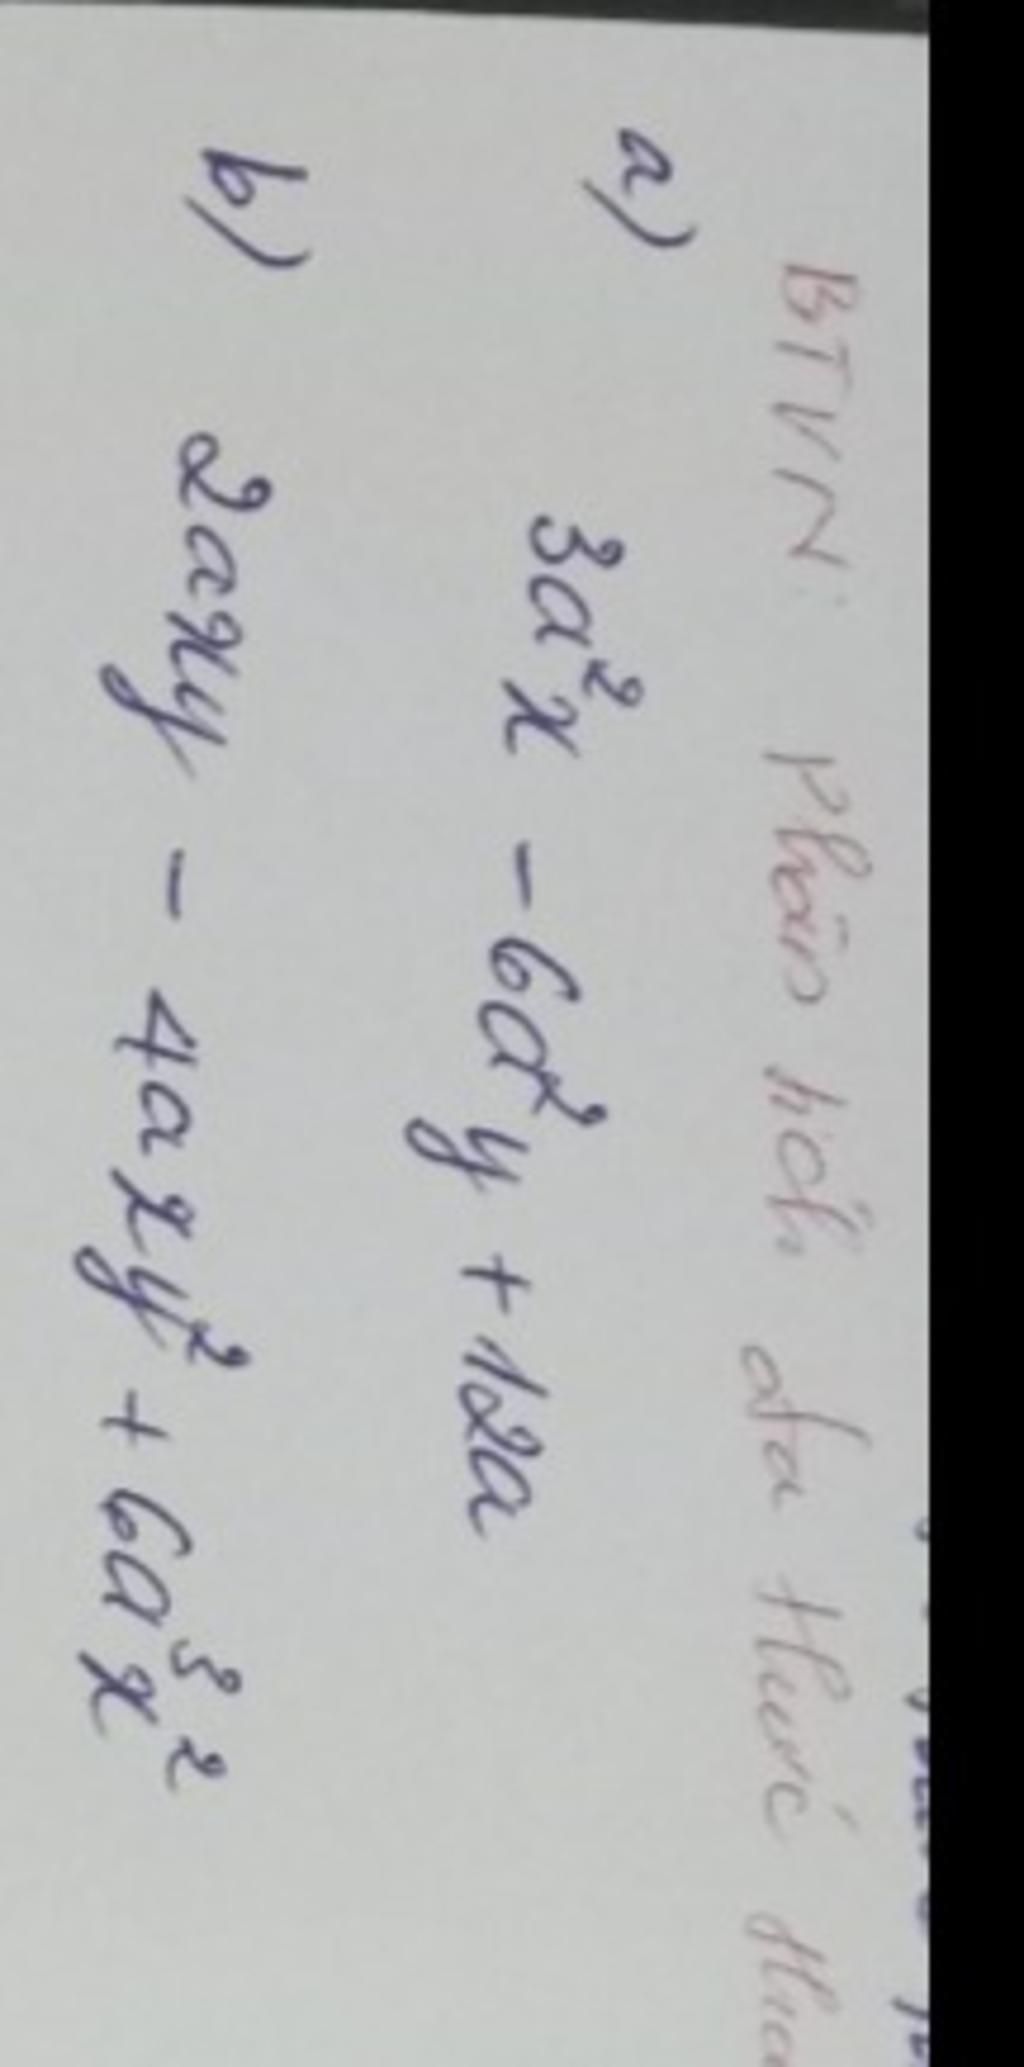 BTVN: Phân tích đa thức thà
a) 3a²x - 6a²y + 12a
b) 2axy - 4axy² + 6a³x²